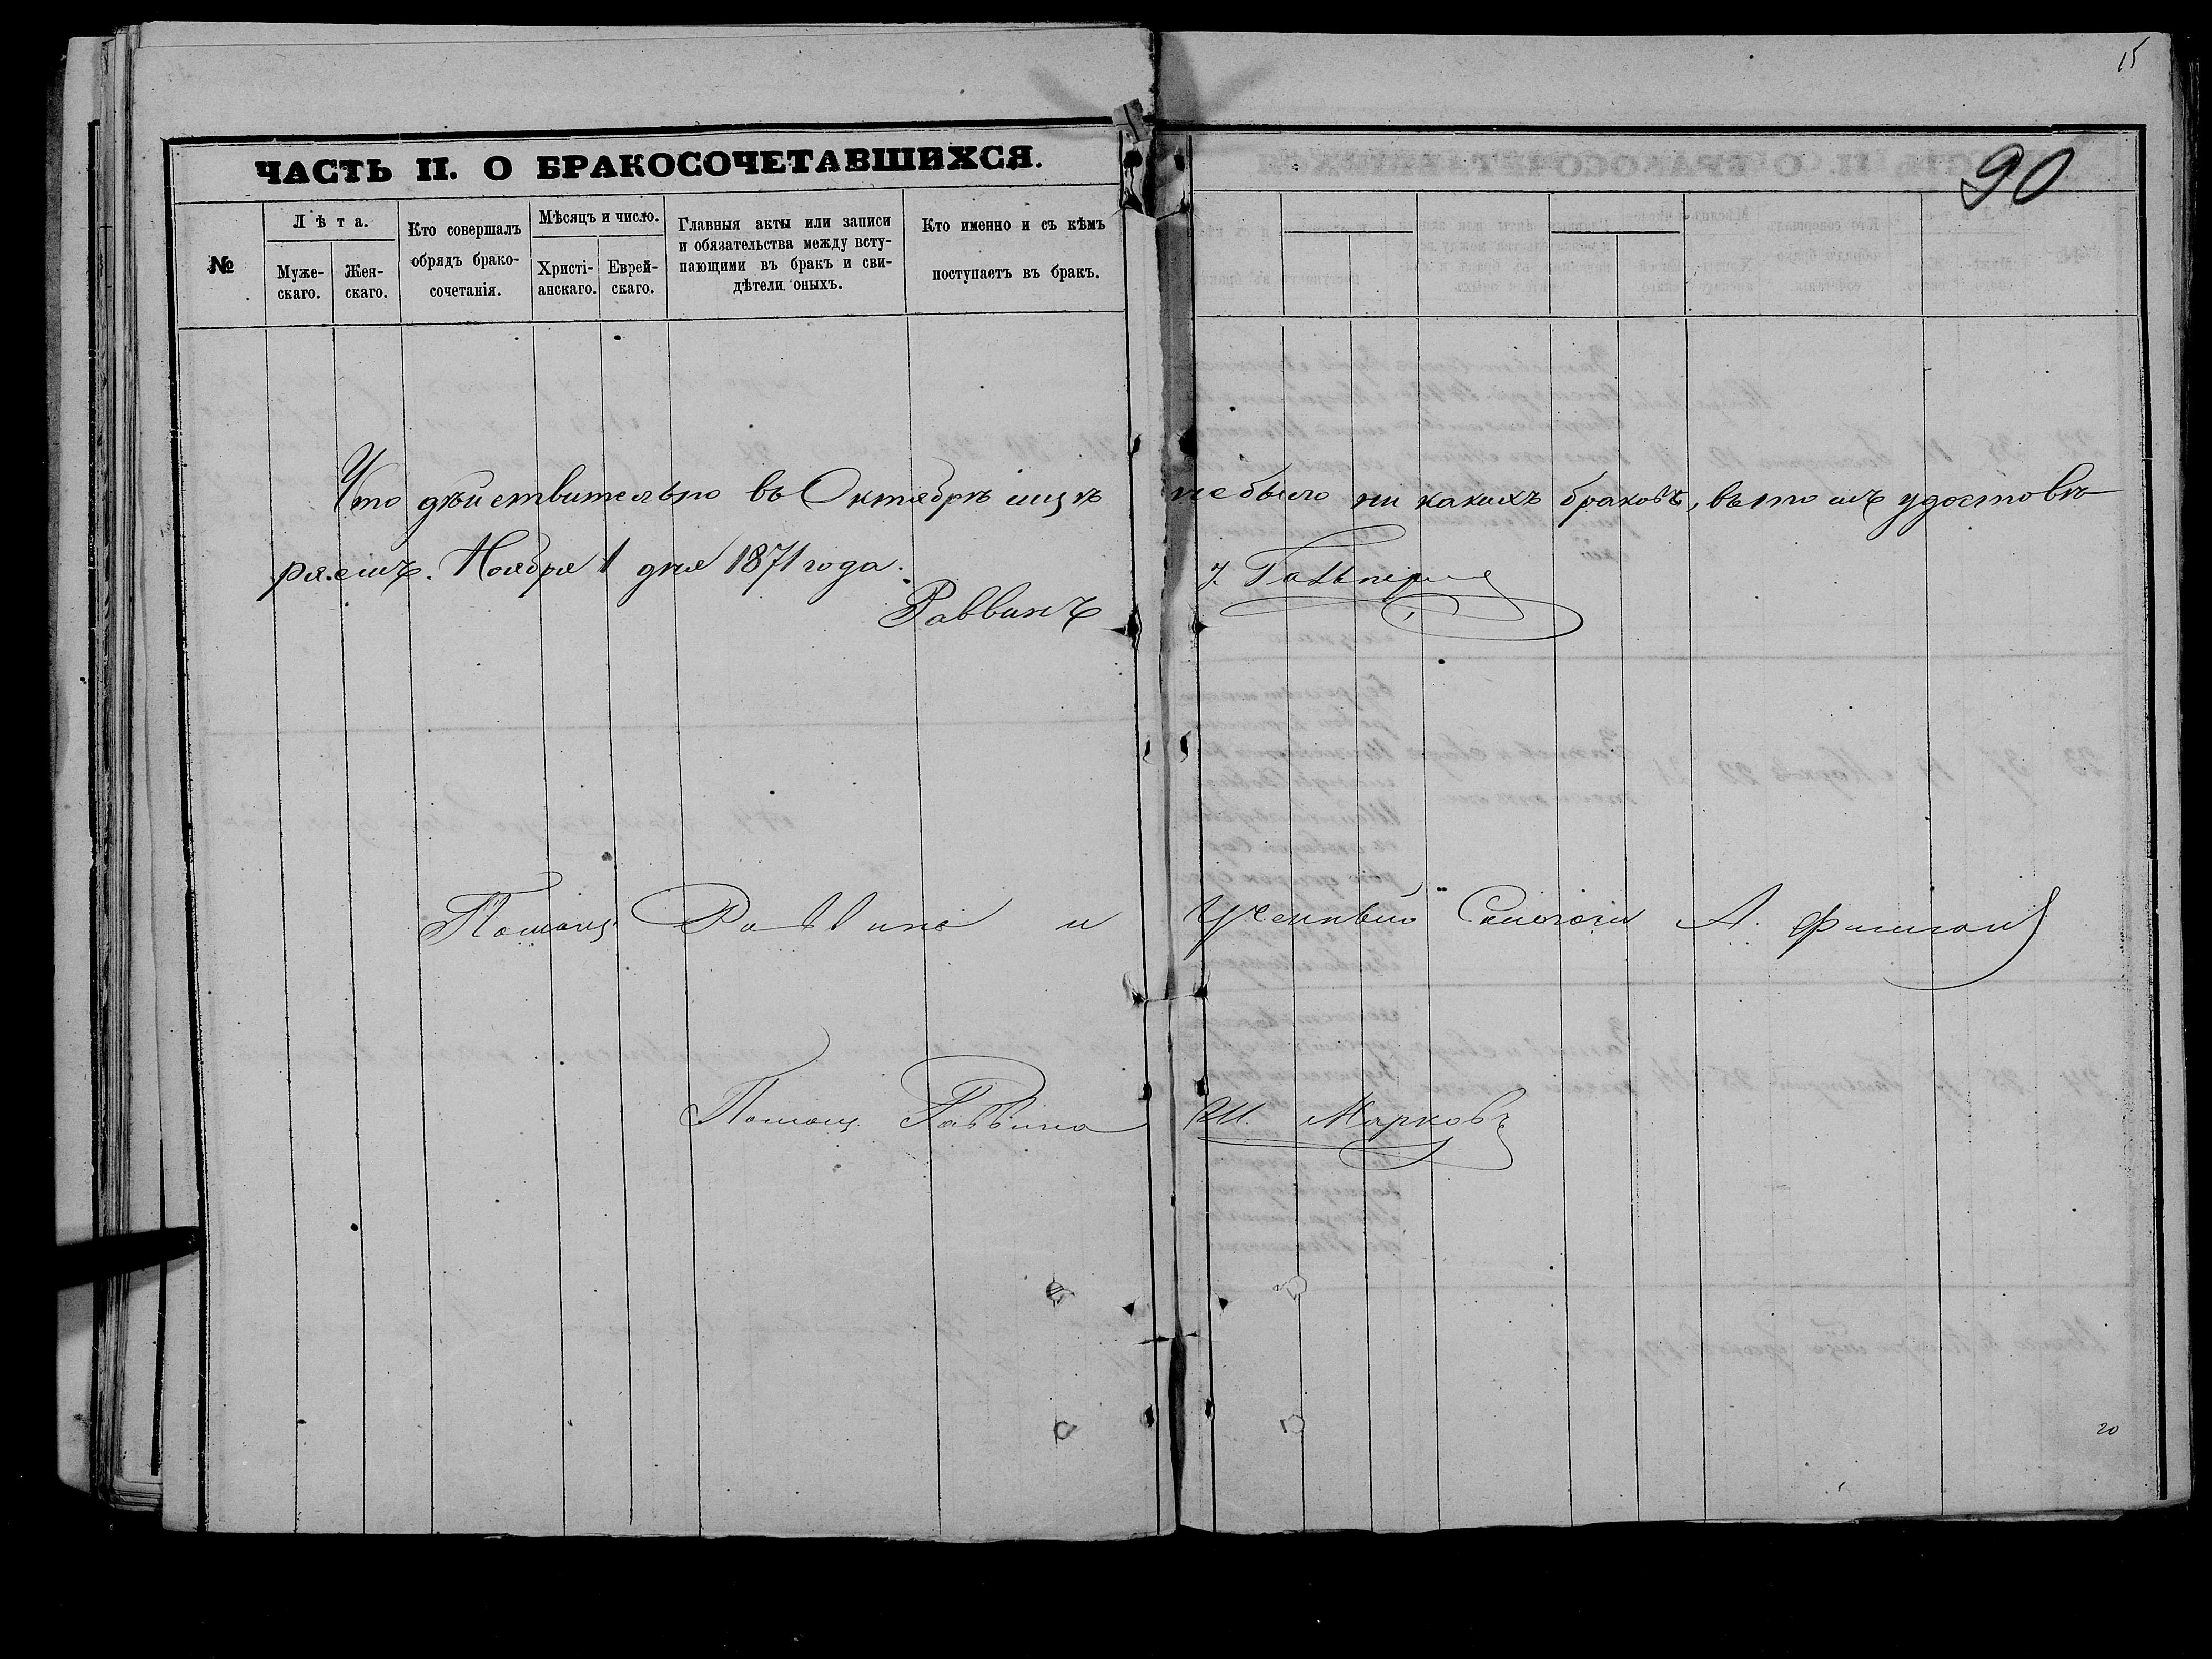 15
90
ЧАСТЬ II. О БРАКОСОЧЕТАВШИХСЯ.
№
Лѣта.
Муже-
скаго.
Жен-
скаго.
Кто совершалъ
обрядъ брако-
сочетанія.
Мѣсяцъ и число.
Христі-
анскаго.
Еврей-
скаго.
Главныя акты или записи
и обязательства между всту-
пающими въ бракъ и сви-
дѣтели оныхъ.
Кто именно и съ кѣмъ
поступаетъ въ бракъ.
Что дѣйствительно въ Октябрѣ мцѣ не было ни какихъ браковъ, въ томъ удостовѣ-
ряемъ. Ноября 1 дня 1871 года.
Раввинъ Гальперинъ
Помощ. Раввина и Ученый А.
Помощ. Раввина Ш. Марковъ
20